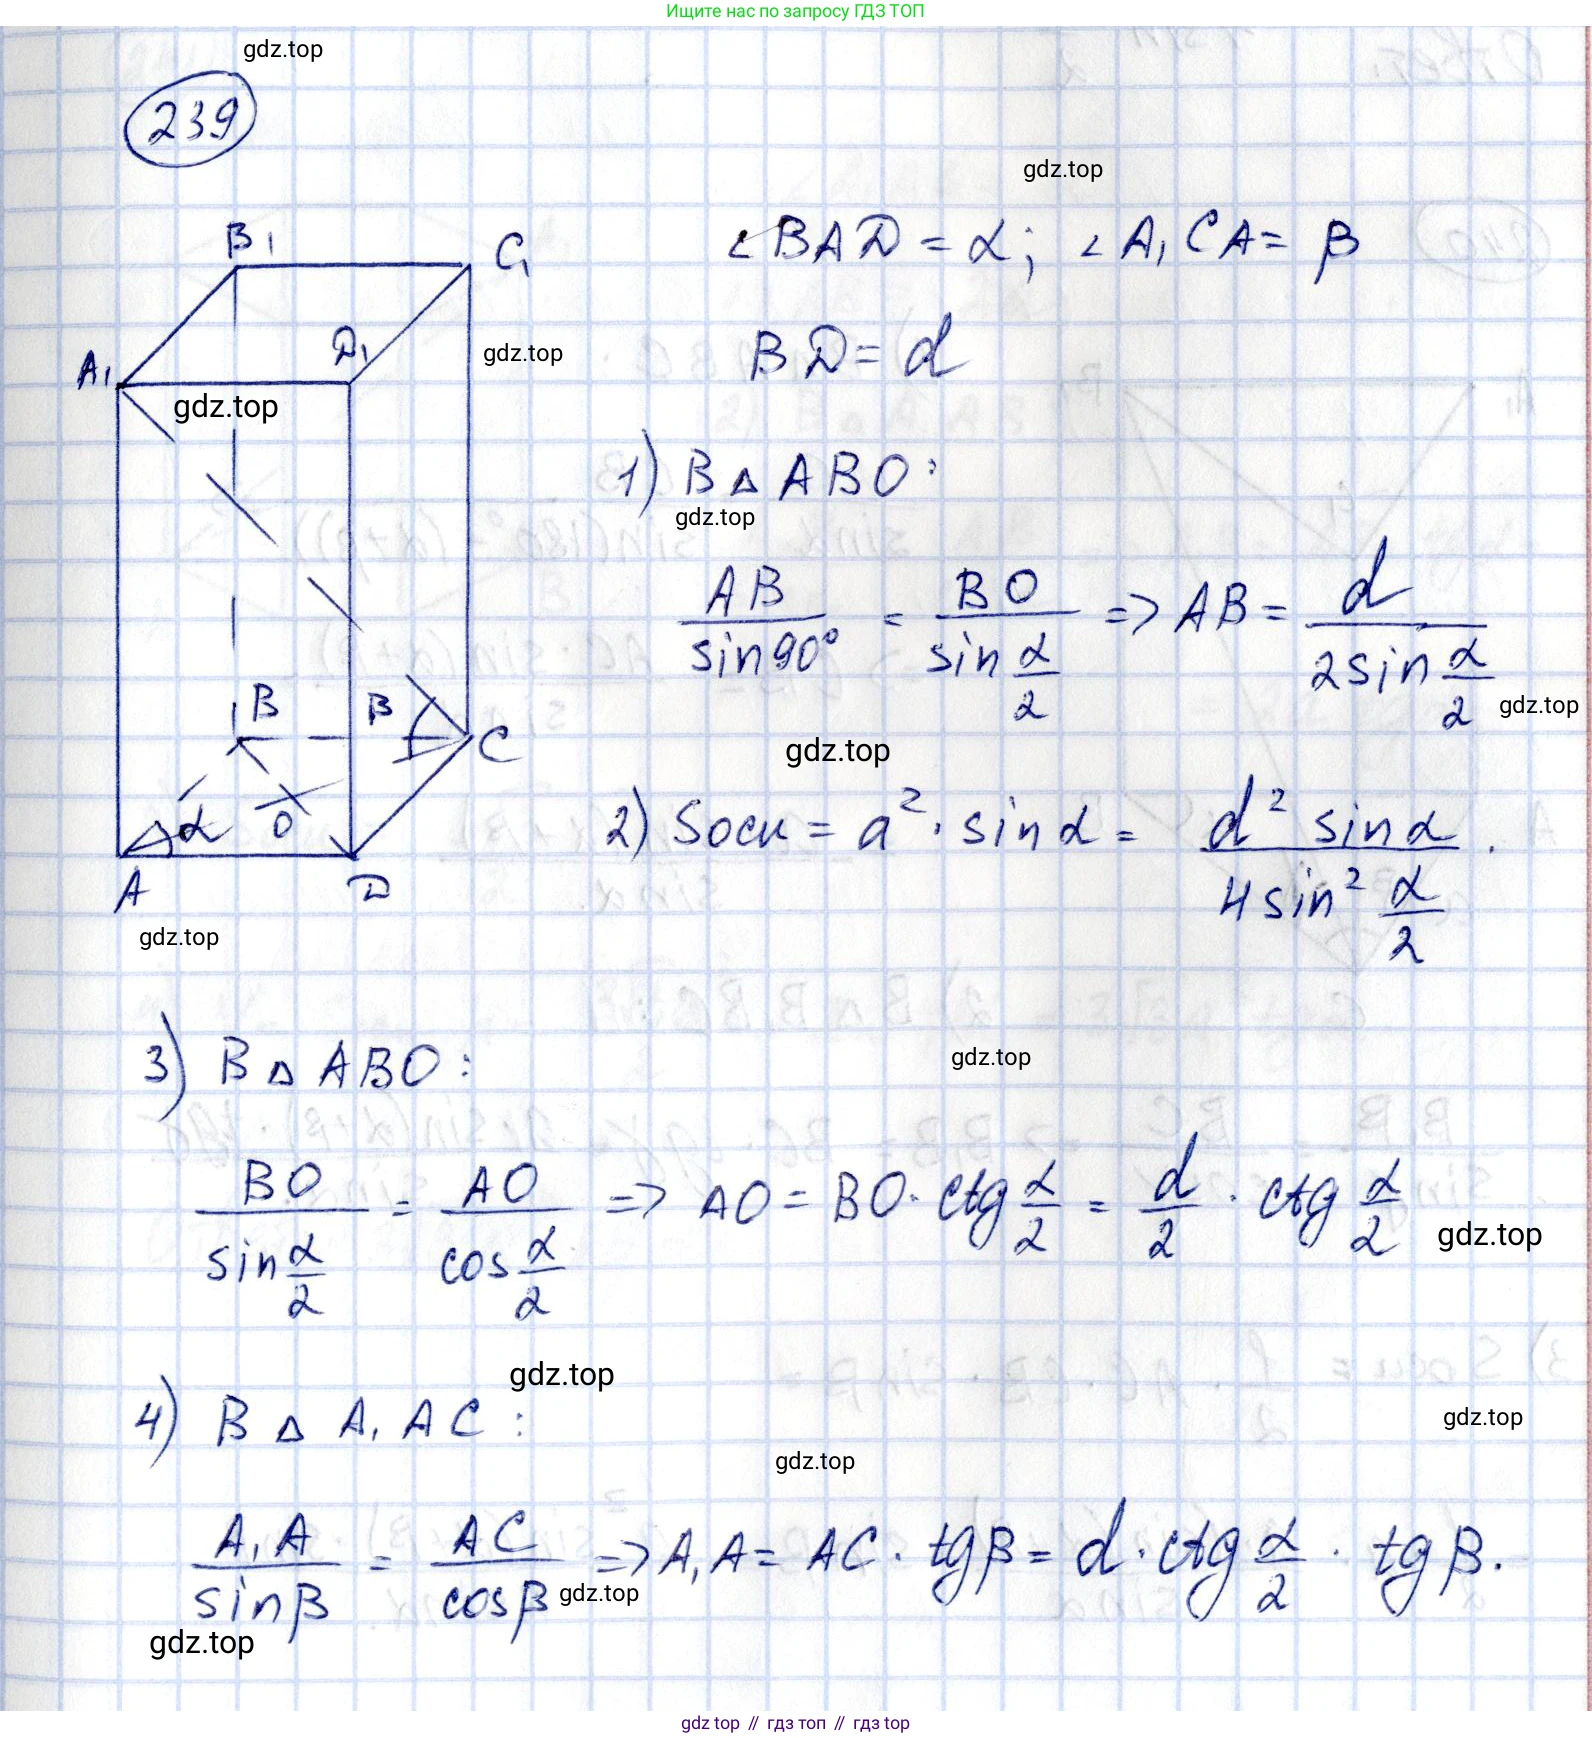 Ищите нас по запросу ГДЗ ТОП
gdz.top
239
gdz.top
B₁
C₁
∠BAD = α; ∠A₁CA = β
A₁
D₁
gdz.top
BD = d
gdz.top
1) В △ ABO:
gdz.top
AB/sin90° = BO/sin α/2 => AB = d/(2sin α/2)
gdz.top
B
β
C
gdz.top
α
O
2) Sосн = a² · sin α = d² sin α/(4 sin² α/2).
A
D
gdz.top
3) В △ ABO:
gdz.top
BO/sin α/2 = AO/cos α/2 => AO = BO · ctg α/2 = d/2 · ctg α/2
gdz.top
gdz.top
4) В △ A₁AC:
gdz.top
gdz.top
A₁A/sinβ = AC/cosβ => A₁A = AC · tgβ = d · ctg α/2 · tgβ.
gdz.top
gdz.top
gdz top // гдз топ // гдз top